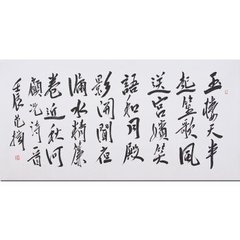 玉樓天半
起笙歌風
送宮嬪笑
語和月殿
影開聞夜
漏水精簾
卷近秋河
顧況詩
壬辰